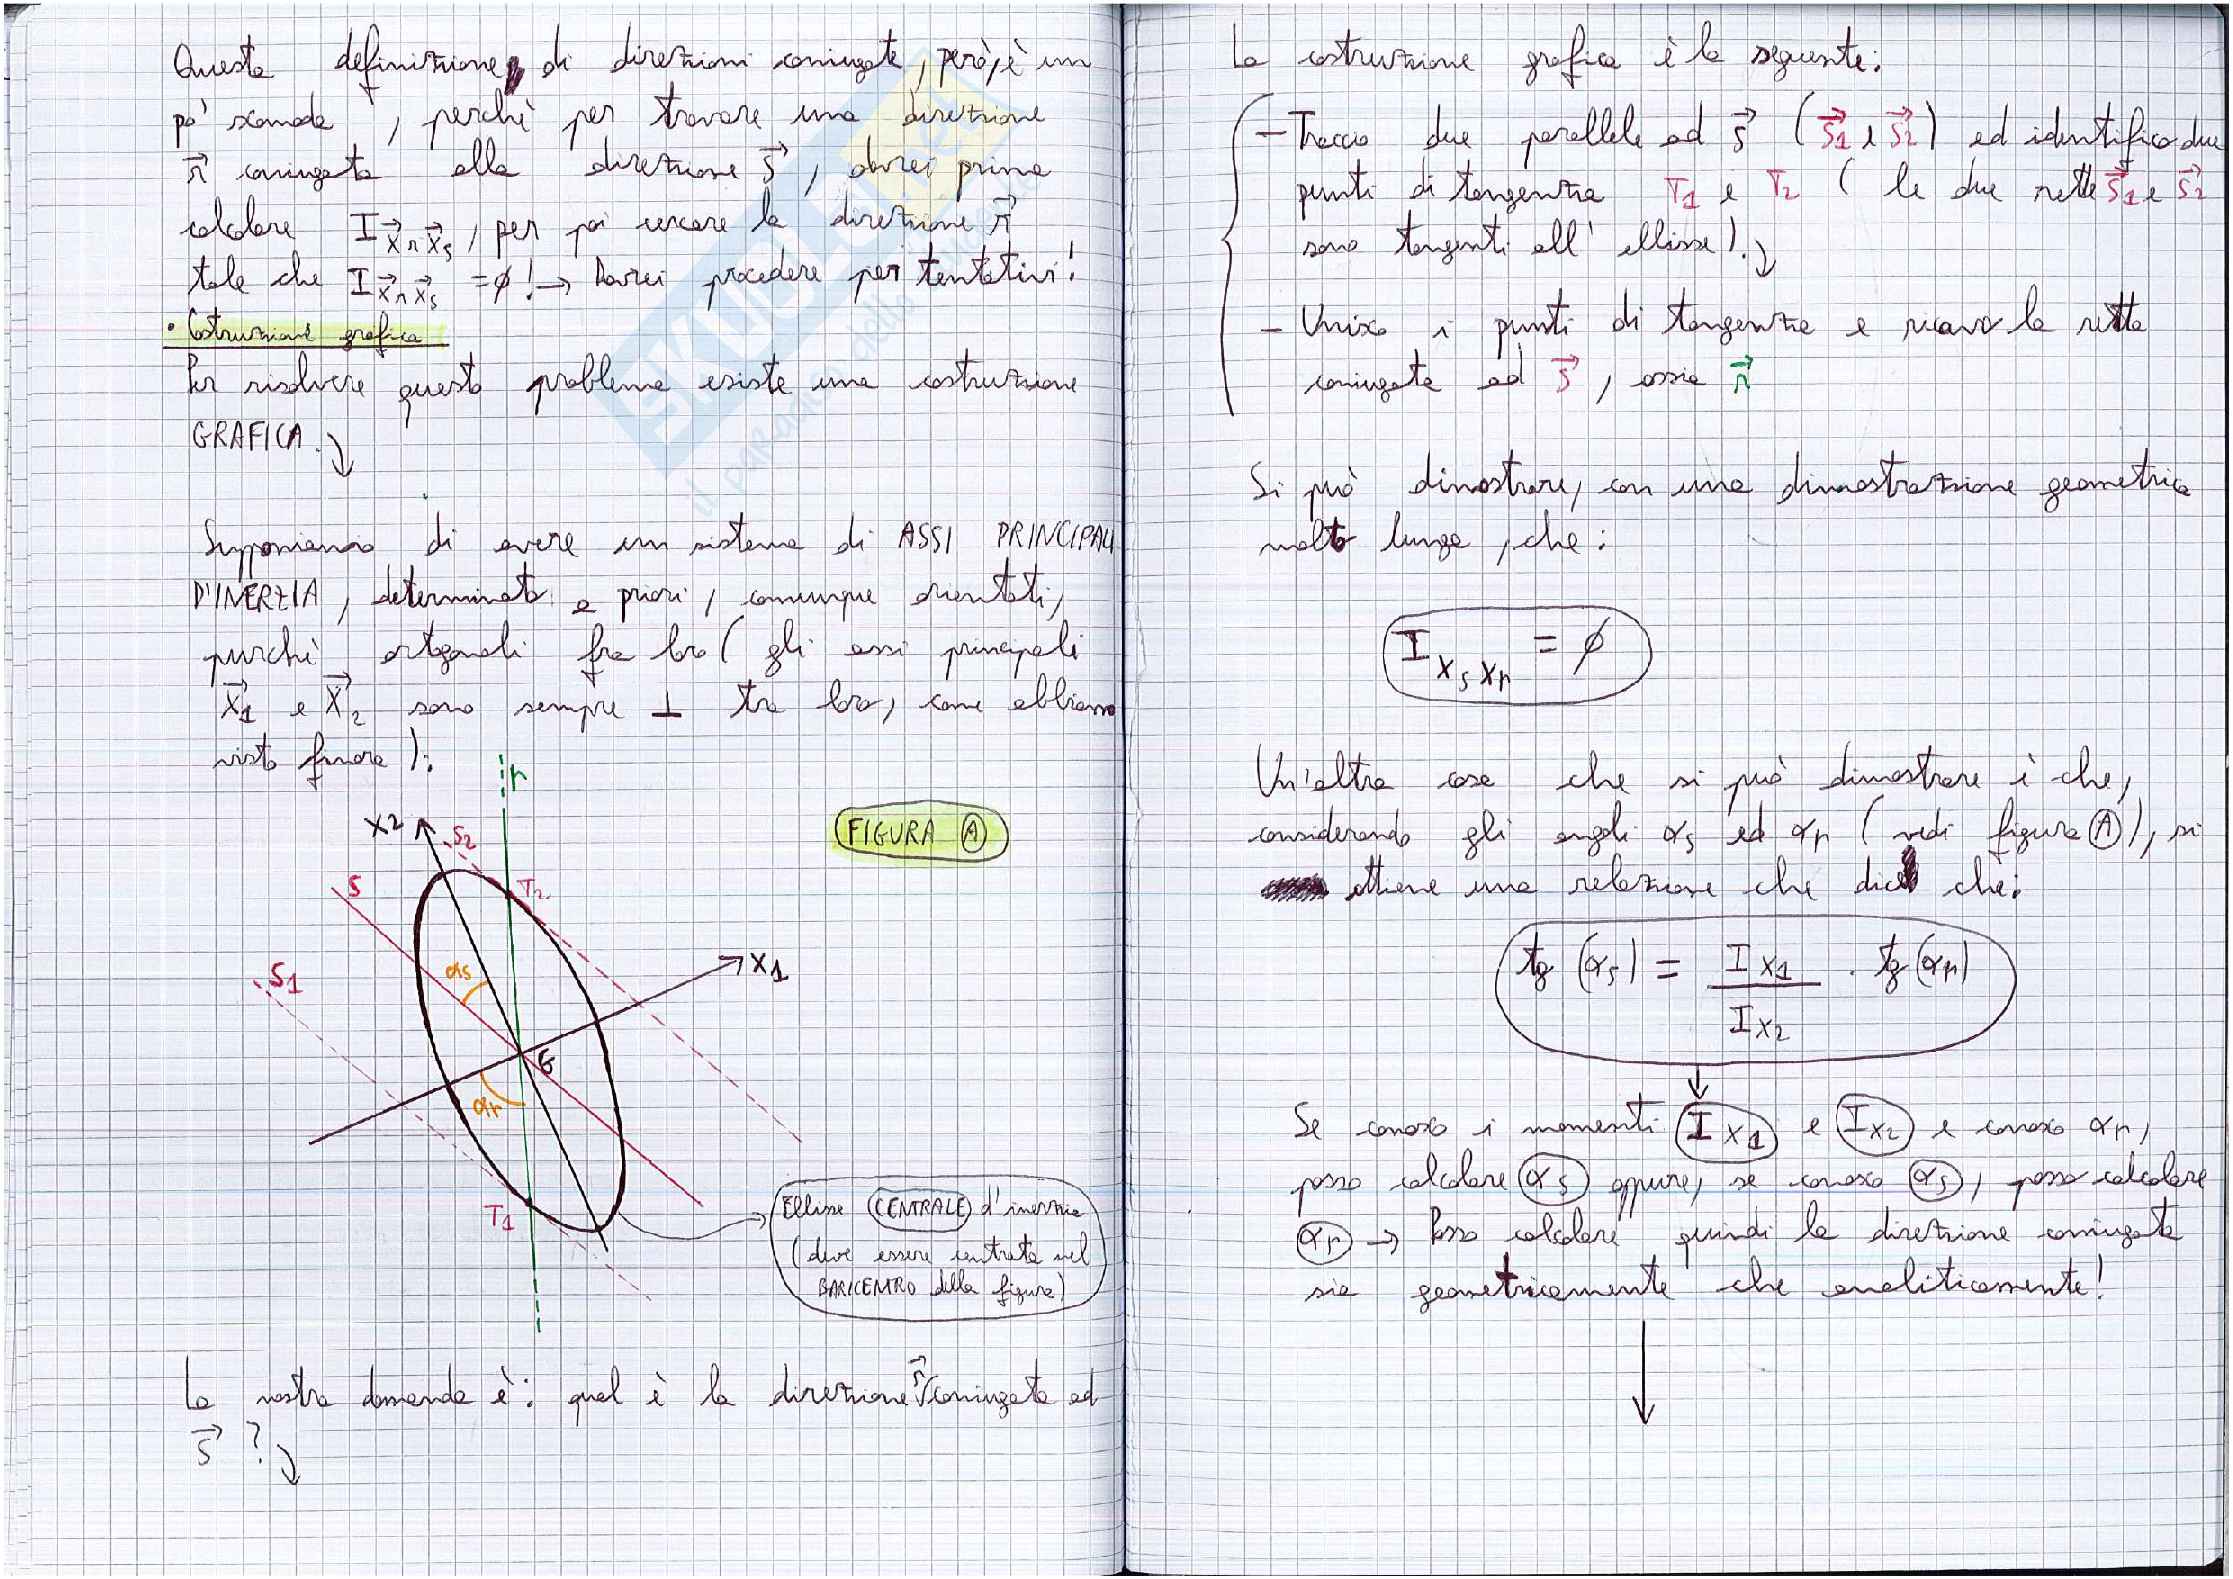 Questa definizione di direzioni coniugate, però, è un
pò scomoda, perchè per trovare una direzione
r coniugata alla direzione s, dovrei prima
calcolare I xr xs, per poi cercare la direzione r
tale che I xr xs = ø! → Dovrei procedere per tentativi!
• Costruzione grafica
Per risolvere questo problema esiste una costruzione
GRAFICA.
Supponiamo di avere un sistema di ASSI PRINCIPALI
D'INERZIA, determinato a priori, comunque orientati,
purchè ortogonali fra loro (gli assi principali
X1 e X2 sono sempre ⊥ tra loro, come abbiamo
visto finora):
r
X2
S2
FIGURA A
S
T2
αs
X1
S1
G
αr
T1
Ellisse CENTRALE d'inerzia
(deve essere centrata nel
BARICENTRO della figura)
La nostra domanda è: qual è la direzione r coniugata ad
s ?
La costruzione grafica è la seguente:
- Traccio due parallele ad s (s1 e s2) ed identifico due
punti di tangenza T1 e T2 (le due rette s1 e s2
sono tangenti all'ellisse).
- Unisco i punti di tangenza e ricavo la retta
coniugata ad s, ossia r
Si può dimostrare, con una dimostrazione geometrica
molto lunga, che:
I xs xr = ø
Un'altra cosa che si può dimostrare è che,
considerando gli angoli αs ed αr (vedi figura A), si
ottiene una relazione che dice che:
tg (αs) = I x1 / I x2 · tg (αr)
Se conosco i momenti I x1 e I x2 e conosco αr,
posso calcolare αs oppure, se conosco αs, posso calcolare
αr → Posso calcolare quindi la direzione coniugata
sia geometricamente che analiticamente!
SKUOLA.net
il paradiso dello studente